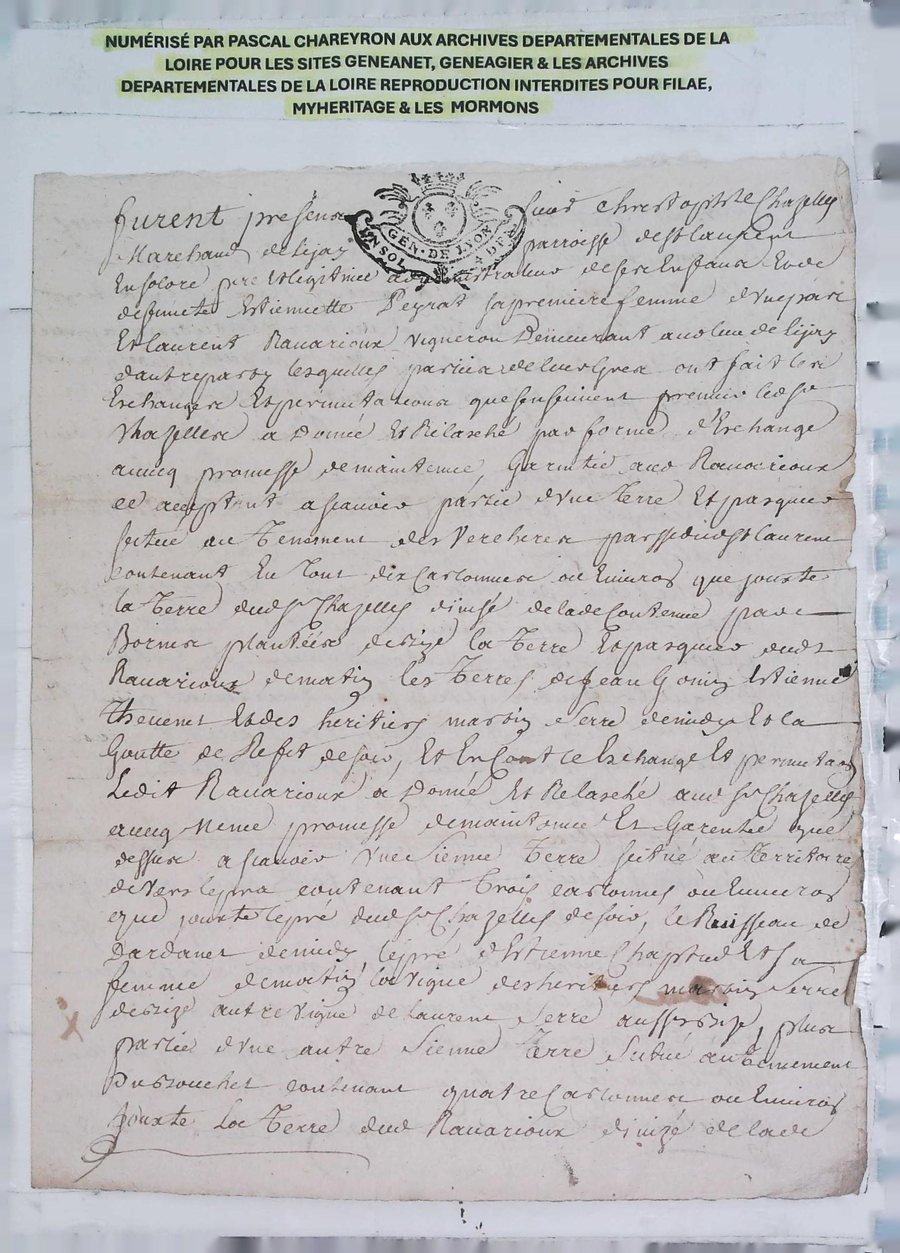 NUMÉRISÉ PAR PASCAL CHAREYRON AUX ARCHIVES DEPARTEMENTALES DE LA
LOIRE POUR LES SITES GENEANET, GENEAGIER & LES ARCHIVES
DEPARTEMENTALES DE LA LOIRE REPRODUCTION INTERDITES POUR FILAE,
MYHERITAGE & LES MORMONS
GEN. DE LYON
UN SOL 4 D. F.
furent presens sieur Christophle Chazelles
Marchand de lijay parroisse de St laurent
En solore pere Et legitime administrateur de ses Enfans Et de
defuncte Estiennette Peyrat sa premiere femme d'vne part
Et laurent Rauarioux vigneron Demeurant aud lieu de lijay
d'autre part lesquelles parties de leur Gré ont fait les
Exchanges Et permutations que s'ensuiuent premier led sr
Chazelles a Donné Et Relasché par forme d'Exchange
auecq promesse de maintenue, Garentie aud Rauarioux
ce acceptant a scauoir partie d'vne Terre Et pasquier
scitué au Tenement des Vercheres parr dud St laurent
contenant En Tout dix Cartonnes ou Enuiros que jouxte
la Terre dud sr Chazelles diuisé de lade Contenue par
Bornes plantées de bize la Terre Et pasquier dudt
Rauarioux de matin les Terres de Jean Gonin Estienne
Theuenet Et des heritiers martin Serre de midy Et la
Goutte de de soir, Et En Contre Exchange Et permutaon
Ledit Rauarioux a Donné Et Relasché aud sr Chazelles
auecq meme promesse de maintenue Et Garentie que
dessus a scauoir vne sienne Terre scitué au Territoire
de contenant Trois cartonnes ou Enuiros
que jouxte le pré dud sr Chazelles de soir, le Ruisseau de
Dardanet de midy, le pré d'Estienne Chaptud Et sa
femme de matin, la vigne des heritiers martin Serre
de bize autre vigne de Laurent Serre aussy bize, plus
partie d'vne autre sienne Terre scitué au Tenement
Du contenant quatre Cartonnes ou Enuiros
jouxte La Terre dud Rauarioux diuizé de lade